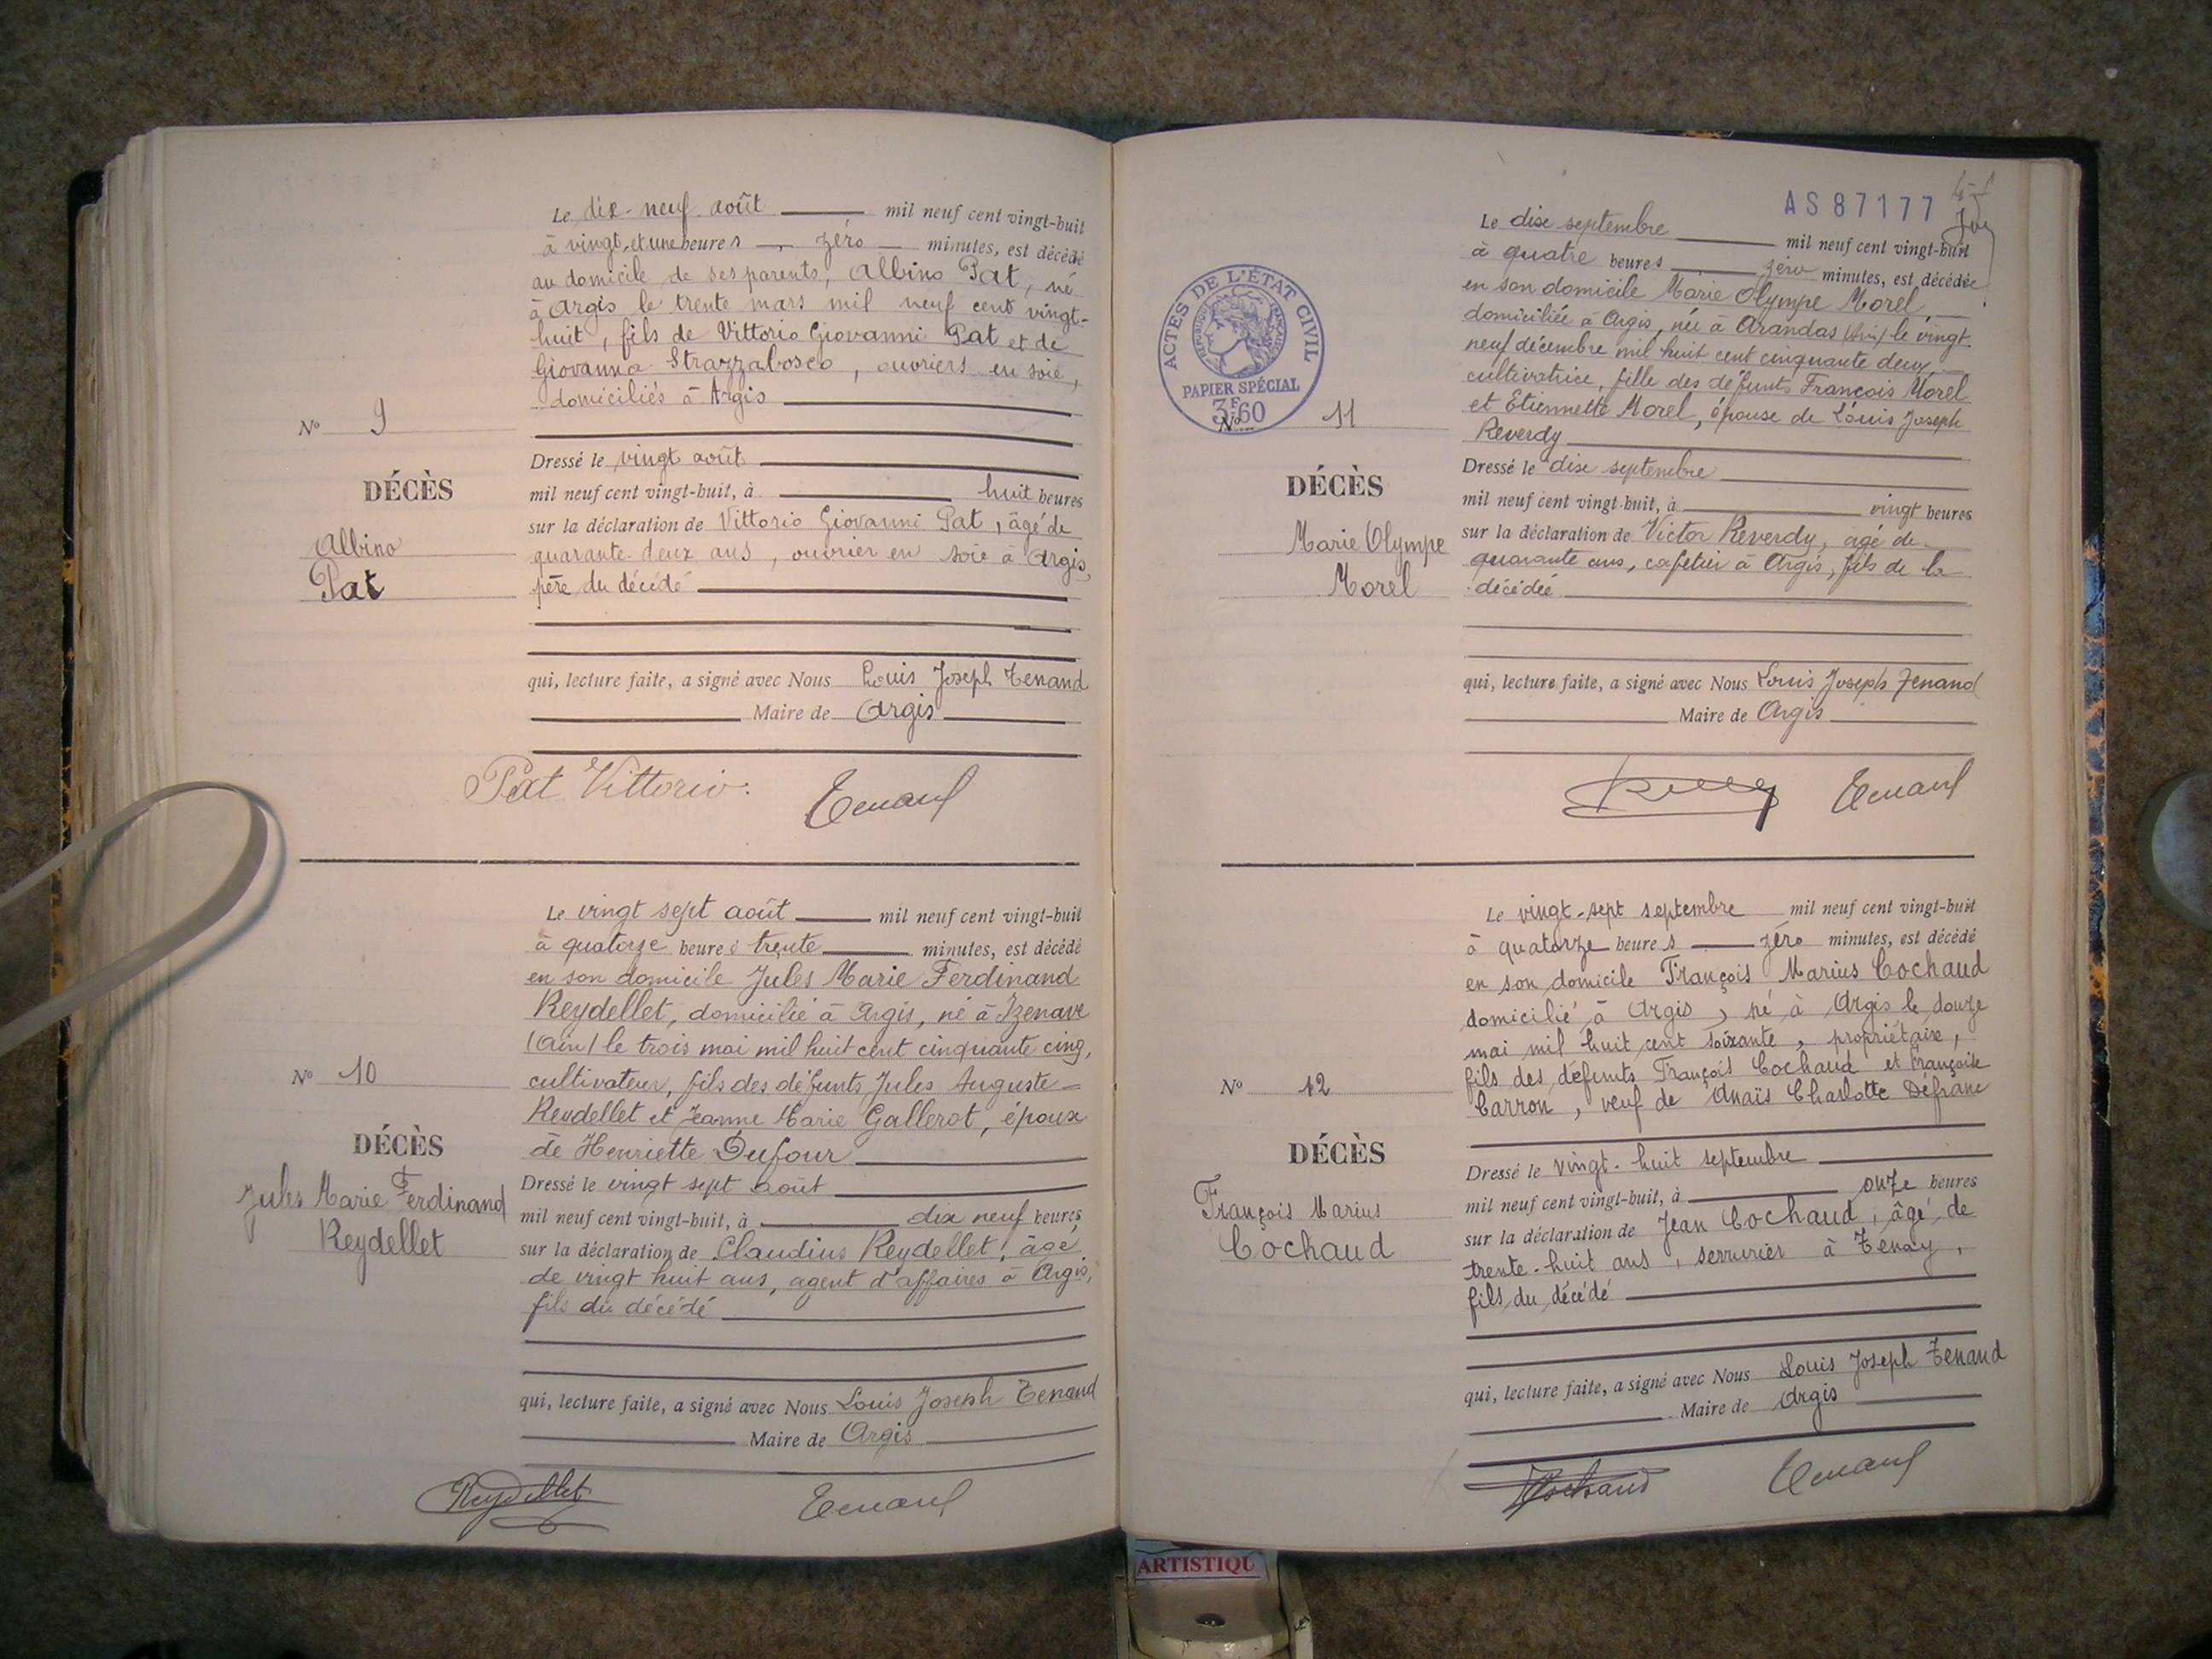 Le dix-neuf août mil neuf cent vingt-huit
à vingt-et-une heures, zéro minutes, est décédé
au domicile de ses parents, Albino Pat, né
à Argis le trente mars mil neuf cent vingt-
huit, fils de Vittorio Giovanni Pat et de
Giovanna Strazzabosco, ouvriers en soie,
domiciliés à Argis
No 9
Dressé le vingt août
DÉCÈS
mil neuf cent vingt-huit, à huit heures
sur la déclaration de Vittorio Giovanni Pat, âgé de
Albino
quarante-deux ans, ouvrier en soie à Argis,
Pat
père du décédé
qui, lecture faite, a signé avec Nous Louis Joseph Tenand
Maire de Argis
Pat Vittorio. Tenand
Le vingt sept août mil neuf cent vingt-huit
à quatorze heures trente minutes, est décédé
en son domicile Jules Marie Ferdinand
Reydellet, domicilié à Argis, né à Izenave
(Ain) le trois mai mil huit cent cinquante cinq,
No 10
cultivateur, fils des défunts Jules Auguste
Reydellet et Jeanne Marie Gallerot, époux
DÉCÈS
de Henriette Dufour
Dressé le vingt sept août
Jules Marie Ferdinand
mil neuf cent vingt-huit, à dix neuf heures
Reydellet
sur la déclaration de Claudius Reydellet, âgé
de vingt huit ans, agent d'affaires à Argis,
fils du décédé
qui, lecture faite, a signé avec Nous Louis Joseph Tenand
Maire de Argis
Reydellet Tenand
AS87177
Le dix septembre mil neuf cent vingt-huit
à quatre heures zéro minutes, est décédée
en son domicile Marie Olympe Morel,
domiciliée à Argis, née à Arandas (Ain) le vingt
neuf décembre mil huit cent cinquante deux,
cultivatrice, fille des défunts François Morel
et Etiennette Morel, épouse de Louis Joseph
Reverdy
ACTES DE L'ÉTAT CIVIL
RÉPUBLIQUE FRANÇAISE
PAPIER SPÉCIAL
3F60
No 11
Dressé le dix septembre
DÉCÈS
mil neuf cent vingt-huit, à vingt heures
Marie Olympe
sur la déclaration de Victor Reverdy, agé de
quarante ans, cafetier à Argis, fils de la
Morel
décédée
qui, lecture faite, a signé avec Nous Louis Joseph Tenand
Maire de Argis
Tenand
Le vingt-sept septembre mil neuf cent vingt-huit
à quatorze heures zéro minutes, est décédé
en son domicile François Marius Cochaud
domicilié à Argis, né à Argis le douze
mai mil huit cent soixante, propriétaire,
fils des défunts François Cochaud et Françoise
No 12
Carron, veuf de Anaïs Charlotte Défranc
DÉCÈS
Dressé le vingt-huit septembre
François Marius
mil neuf cent vingt-huit, à onze heures
Cochaud
sur la déclaration de Jean Cochaud, âgé de
trente-huit ans, serrurier à Tenay,
fils du décédé
qui, lecture faite, a signé avec Nous Louis Joseph Tenand
Maire de Argis
Cochaud Tenand
ARTISTIQU